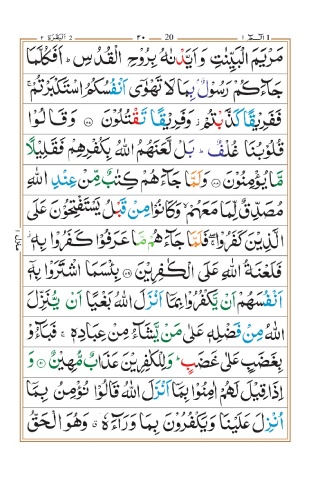 الٓمّٓ ١ 20 ٢٠ البقرة ٢
مَرْيَمَ الْبَيِّنٰتِ وَاَيَّدْنٰهُ بِرُوْحِ الْقُدُسِ ؕ اَفَكُلَّمَا
جَآءَكُمْ رَسُوْلٌۢ بِمَا لَا تَهْوٰٓى اَنْفُسُكُمُ اسْتَكْبَرْتُمْ ۚ
فَفَرِيْقًا كَذَّبْتُمْ ؗ وَفَرِيْقًا تَقْتُلُوْنَ ۝٨٧ وَقَالُوْا
قُلُوْبُنَا غُلْفٌ ؕ بَلْ لَّعَنَهُمُ اللّٰهُ بِكُفْرِهِمْ فَقَلِيْلًا
مَّا يُؤْمِنُوْنَ ۝٨٨ وَلَمَّا جَآءَهُمْ كِتٰبٌ مِّنْ عِنْدِ اللّٰهِ
مُصَدِّقٌ لِّمَا مَعَهُمْ ۙ وَكَانُوْا مِنْ قَبْلُ يَسْتَفْتِحُوْنَ عَلَى
الَّذِيْنَ كَفَرُوْا ۖۚ فَلَمَّا جَآءَهُمْ مَّا عَرَفُوْا كَفَرُوْا بِهٖ ؗ
فَلَعْنَةُ اللّٰهِ عَلَى الْكٰفِرِيْنَ ۝٨٩ بِئْسَمَا اشْتَرَوْا بِهٖٓ
اَنْفُسَهُمْ اَنْ يَّكْفُرُوْا بِمَآ اَنْزَلَ اللّٰهُ بَغْيًا اَنْ يُّنَزِّلَ
اللّٰهُ مِنْ فَضْلِهٖ عَلٰى مَنْ يَّشَآءُ مِنْ عِبَادِهٖ ۚ فَبَآءُوْ
بِغَضَبٍ عَلٰى غَضَبٍ ؕ وَلِلْكٰفِرِيْنَ عَذَابٌ مُّهِيْنٌ ۝٩٠ وَ
اِذَا قِيْلَ لَهُمْ اٰمِنُوْا بِمَآ اَنْزَلَ اللّٰهُ قَالُوْا نُؤْمِنُ بِمَآ
اُنْزِلَ عَلَيْنَا وَيَكْفُرُوْنَ بِمَا وَرَآءَهٗ ۗ وَهُوَ الْحَقُّ